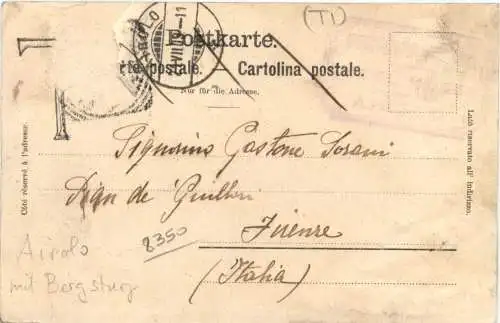 (TI)
AIROLO
Postkarte.
Carte postale. — Cartolina postale.
Nur für die Adresse.
Côté réservé à l'adresse.
Lato riservato all' indirizzo.
T
Signorino Gastone
Firenze
(Italia)
8350
Airolo
mit Bergsturz